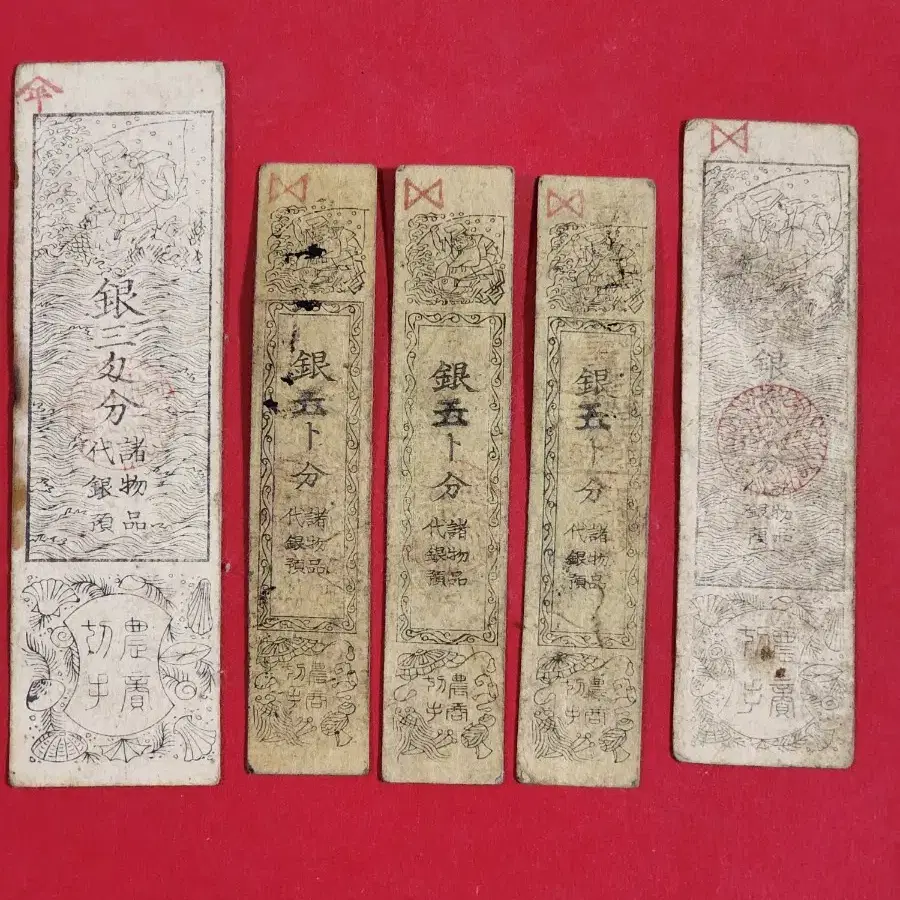 平
銀三匁分
諸物品
代銀預
農賈
切手
銀五卜分
諸物品
代銀預
農商
切手
銀五卜分
諸物品
代銀預
農商
切手
銀五卜分
諸物品
代銀預
農商
切手
銀
分
物品
銀預
農賈
切手